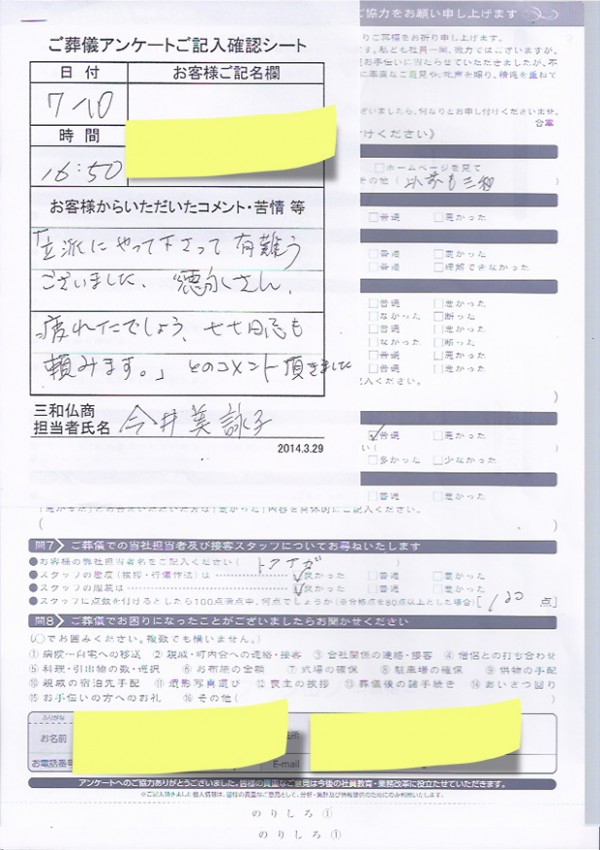 ご協力をお願い申し上げます
ご葬儀アンケートご記入確認シート
日付
お客様ご記名欄
7-10
時間
16:50
お客様からいただいたコメント・苦情 等
「立派にやって下さって有難う
ございました、徳永さん、
疲れたでしょう、七七日忌も
頼みます。」とのコメント頂きました
三和仏商
担当者氏名 今井美詠子
2014.3.29
合掌
けください》
□ホームページを見て
その他( 以前も三和
□普通 □悪かった
□普通 □悪かった
□普通 □理解できなかった
□普通 □悪かった
□なかった □断った
□普通 □悪かった
□なかった □断った
□普通 □悪かった
□普通 □悪かった
記入ください。
☑普通 □悪かった
□多かった □少なかった
□普通 □悪かった
問7 ご葬儀での当社担当者及び接客スタッフについてお尋ねいたします
●お客様の弊社担当者名をご記入ください( トクナガ )
●スタッフの態度(挨拶・行儀作法)は ☑良かった □普通 □悪かった
●スタッフの服装は ☑良かった □普通 □悪かった
●スタッフに点数を付けるとしたら100点満点中、何点でしょうか(※合格点を80点以上とした場合)[ 100 点]
問8 ご葬儀でお困りになったことがございましたらお聞かせください
(〇でお囲みください。複数でも構いません。)
①病院〜自宅への移送 ②親戚・町内会への連絡・接客 ③会社関係の連絡・接客 ④僧侶との打ち合わせ
⑤料理・引出物の数・選択 ⑥お布施の金額 ⑦式場の確保 ⑧駐車場の確保 ⑨供物の手配
⑩親戚の宿泊先手配 ⑪遺影写真選び ⑫喪主の挨拶 ⑬葬儀後の諸手続き ⑭あいさつ回り
⑮お手伝いの方へのお礼 ⑯その他(
ふりがな
お名前
お電話番号
E-mail
アンケートへのご協力ありがとうございました。皆様の貴重なご意見は今後の社員教育・業務改革に役立たせていただきます。
のりしろ①
のりしろ①